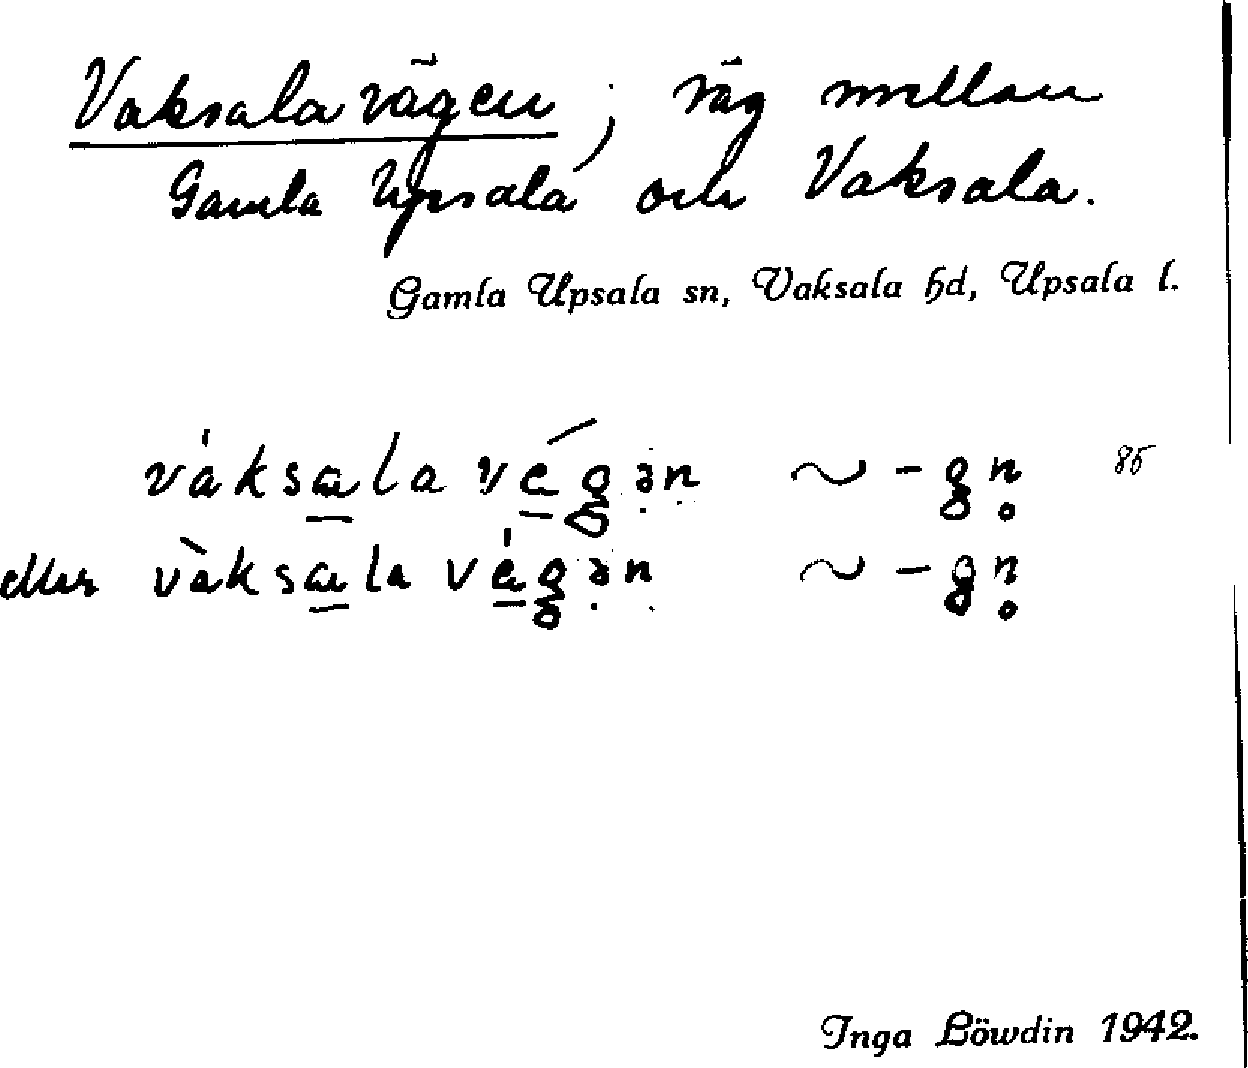 Vaksalavägen; väg mellan
Gamla Upsala och Vaksala.
Gamla Upsala sn, Vaksala hd, Upsala l.
vàksalavégən ~ -gn̥ 85
eller vàksalavégən ~ -gn̥
Inga Löwdin 1942.